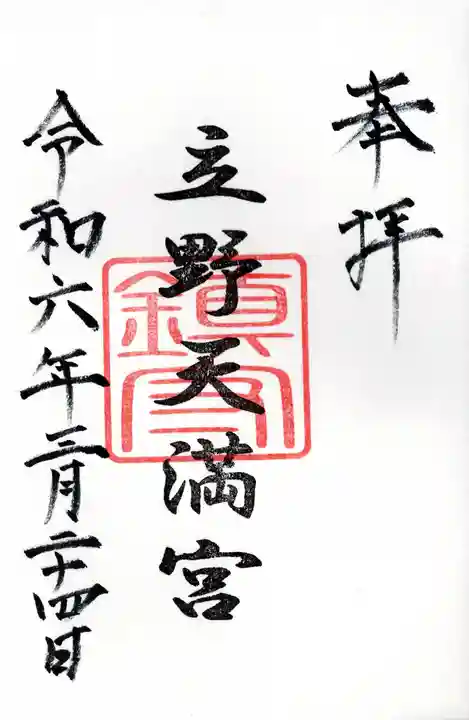 奉拝
立野天満宮
令和六年三月二十四日